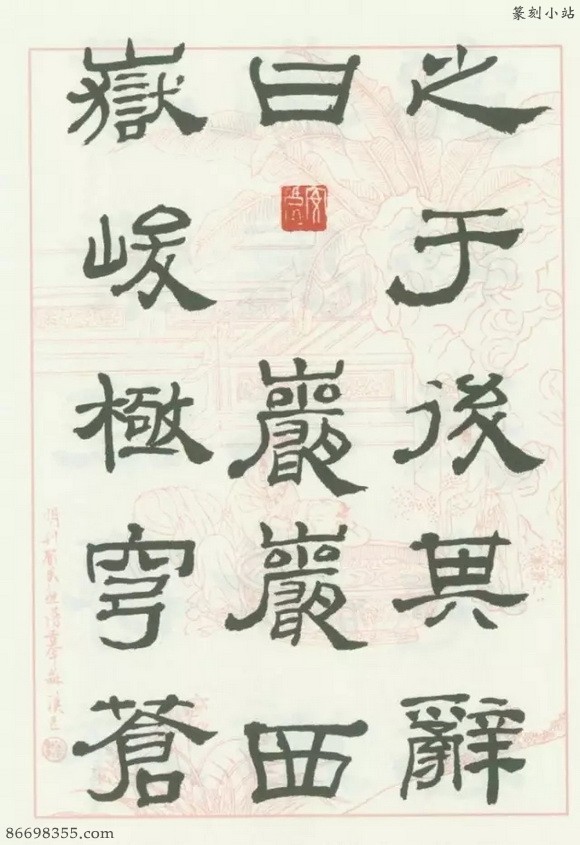 篆刻小站
之于後其辭
曰巖巖西
嶽峻極穹蒼
86698355.com